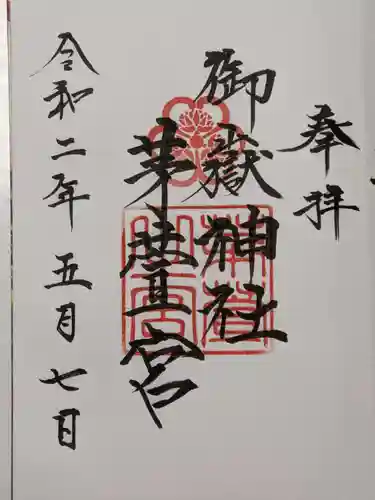 奉拝
御嶽神社
茅萱宮
令和二年五月七日